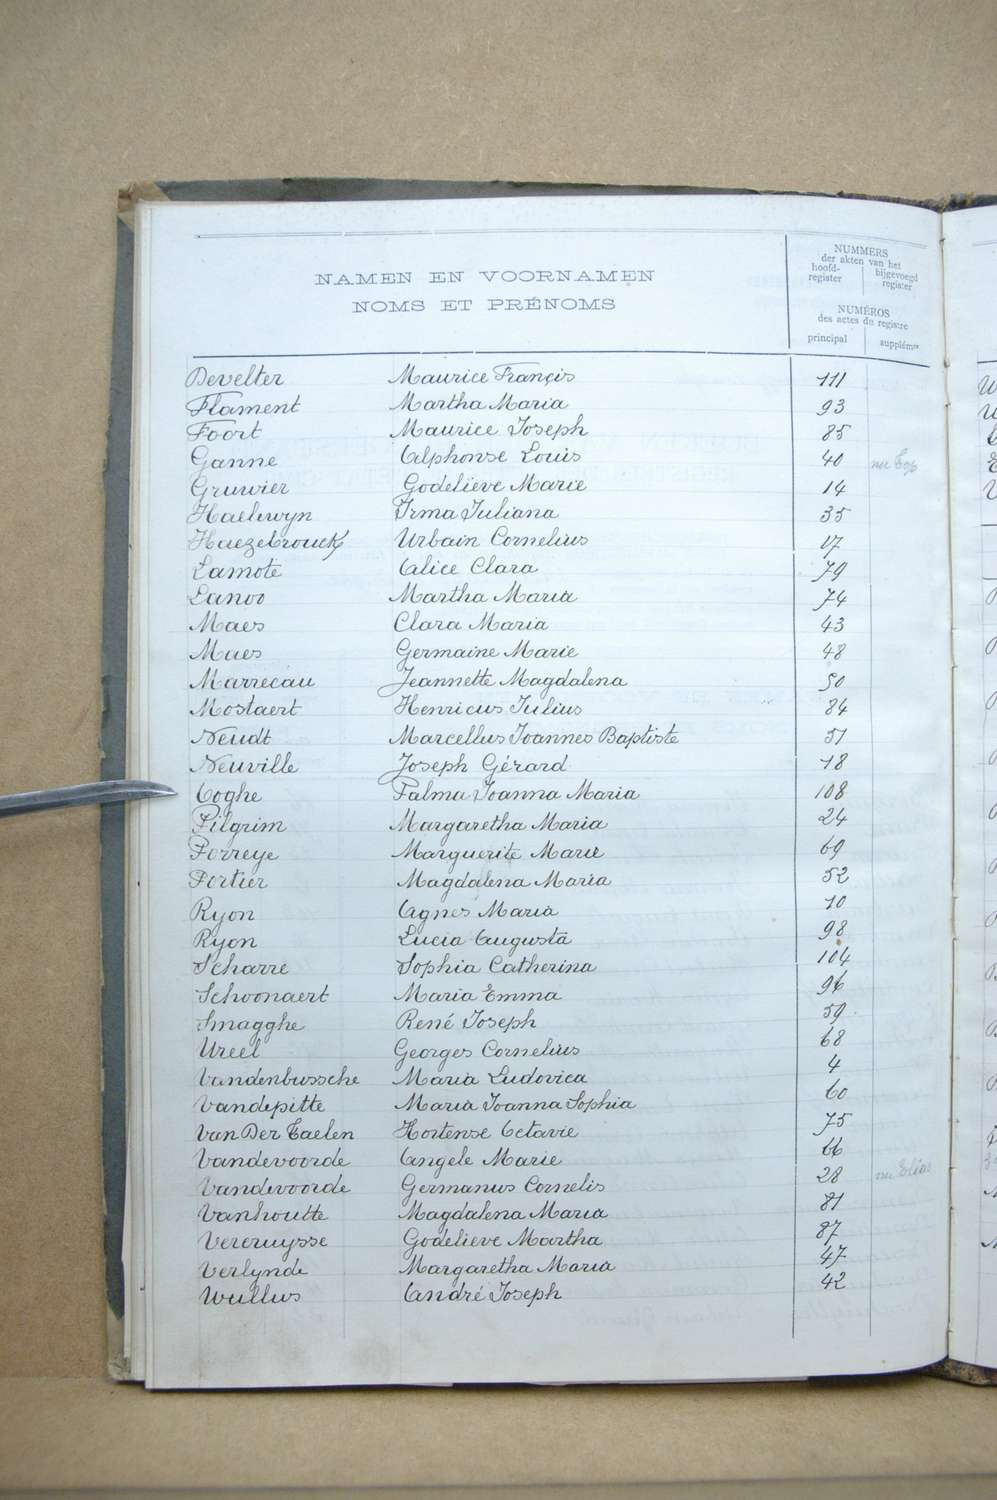 NAMEN EN VOORNAMEN
NOMS ET PRÉNOMS
NUMMERS
der akten van het
hoofd-register
bijgevoegd register
NUMÉROS
des actes du registre
principal
supplém
Develter Maurice Françis 111
Flament Martha Maria 93
Foort Maurice Joseph 85
Ganne Alphonse Louis 40
Gruwier Godelieve Marie 14
Haelewyn Irma Juliana 35
Haezebrouck Urbain Cornelius 17
Lamote Alice Clara 79
Lanoo Martha Maria 74
Maes Clara Maria 43
Mues Germaine Marie 48
Marrecau Jeannette Magdalena 50
Mostaert Henricus Julius 84
Neudt Marcellus Joannes Baptiste 51
Neuville Joseph Gérard 18
Coghe Palma Joanna Maria 108
Pilgrim Margaretha Maria 24
Porreye Marguerite Marie 69
Portier Magdalena Maria 52
Ryon Agnes Maria 10
Ryon Lucia Augusta 98
Scharre Sophia Catherina 104
Schoonaert Maria Emma 96
Smagghe René Joseph 59
Ureel Georges Cornelius 68
Vandenbussche Maria Ludovica 4
Vandepitte Maria Joanna Sophia 60
Van Der Taelen Hortense Octavie 75
Vandevoorde Angele Marie 66
Vandevoorde Germanus Cornelis 28
Vanhoutte Magdalena Maria 81
Vercruysse Godelieve Martha 87
Verlynde Margaretha Maria 47
Wullus André Joseph 42